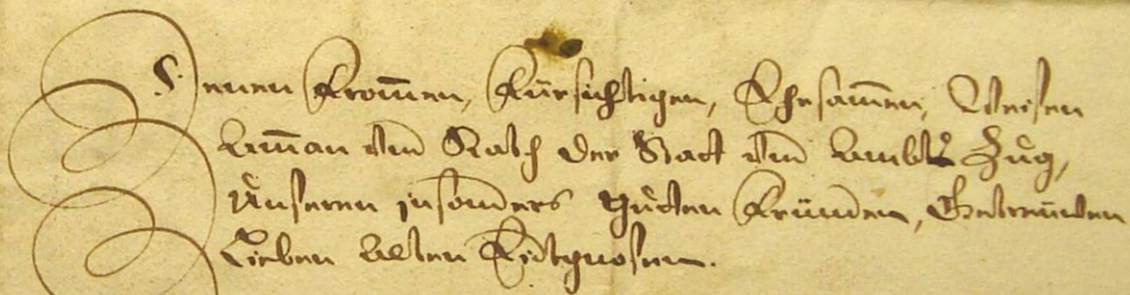 Dennen Frommen, Fürsichtigen, Ehrsammen, Weisen
Amman vnd Rath der Statt vnd Ambts Zug,
Unseren insonders guten Fründen, Getreuwen
Lieben Alten Eidtgnosen.